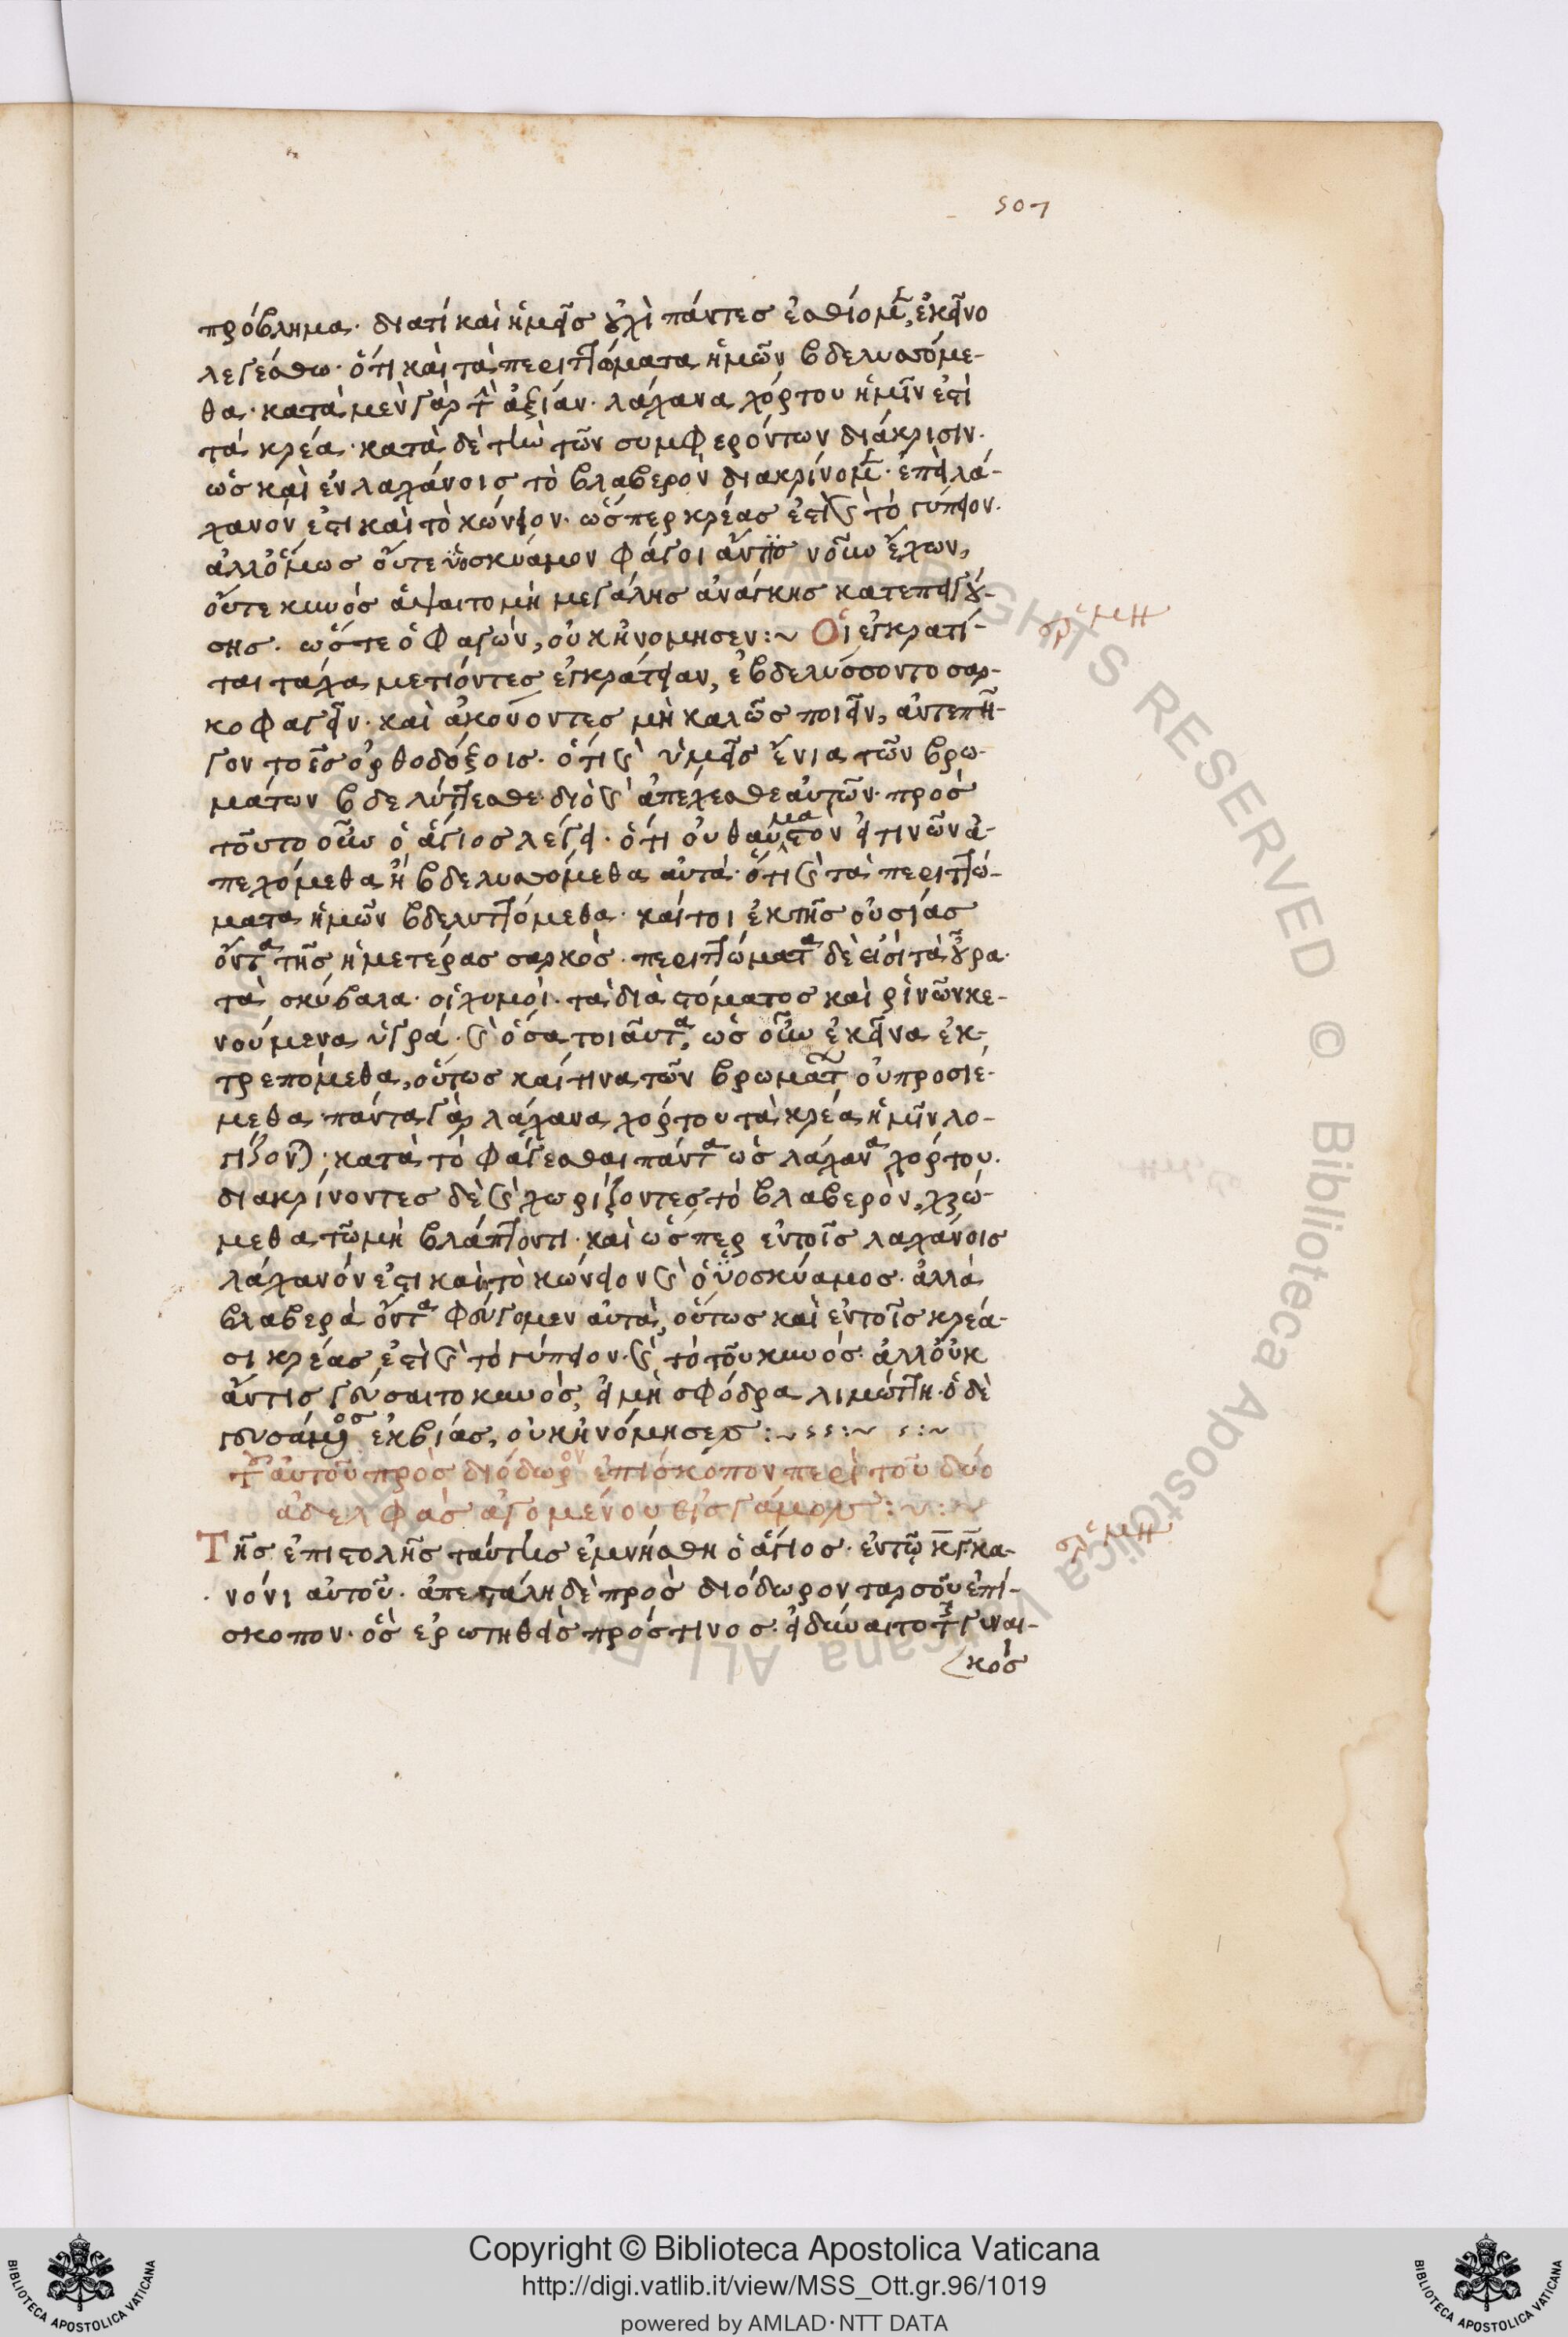 507
πρόβλημα· διατί καὶ ἡμεῖς οὐχὶ πάντες ἐσθίομεν, ἐκεῖνο
λεγέσθω· ὅτι καὶ τὰ περιττώματα ἡμῶν βδελυσσόμε-
θα· κατὰ μὲν γὰρ τὴν ἀξίαν· λάχανα χόρτου ἡμῖν ἐστὶ
τὰ κρέα· κατὰ δὲ τὴν τῶν συμφερόντων διάκρισιν·
ὡς καὶ ἐν λαχάνοις τὸ βλαβερὸν διακρίνομεν· ἐπεὶ λά-
χανον ἐστι καὶ τὸ κώνειον· ὥσπερ κρέας ἐστὶ καὶ τὸ γύπειον·
ἀλλ' ὅμως οὔτε ὑοσκύαμον φάγοι ἄν τις νοῦν ἔχων,
οὔτε κυνὸς ἅψαιτο μὴ μεγάλης ἀνάγκης κατεπειγού-
σης· ὥστε ὁ φαγὼν, οὐκ ἠνόμησεν :~ Οἱ ἐγκρατί-
ται τάχα μετιόντες ἐγκράτειαν, ἐβδελύσσοντο σαρ-
κοφαγεῖν· καὶ ἀκούοντες μὴ καλῶς ποιεῖν, ἀντεπῆ-
γον τοῖς ὀρθοδόξοις· ὅτι καὶ ὑμεῖς ἔνια τῶν βρω-
μάτων βδελύττεσθε· διὸ καὶ ἀπέχεσθε αὐτῶν· πρὸς
τοῦτο οὖν ὁ ἅγιος λέγει· ὅτι οὐ θαυμαστὸν εἰ τινῶν ἀ-
πεχόμεθα ἢ βδελυσσόμεθα αὐτά· ὅτι καὶ τὰ περιττώ-
ματα ἡμῶν βδελυττόμεθα· καίτοι ἐκ τῆς οὐσίας
ὄντα τῆς ἡμετέρας σαρκὸς· περιττώματα δὲ εἰσὶ τὰ οὖρα·
τὰ σκύβαλα· οἱ χυμοὶ· τὰ διὰ στόματος καὶ ῥινῶν κε-
νούμενα ὑγρά· καὶ ὅσα τοιαῦτα, ὡς οὖν ἐκεῖνα ἐκ-
τρεπόμεθα, οὕτως καί τινα τῶν βρωμάτων οὐ προσιέ-
μεθα· πάντα γὰρ λάχανα χόρτου τὰ κρέα ἡμῖν λο-
γίζονται· κατὰ τὸ φάγεσθαι πάντα ὡς λάχανα χόρτου·
διακρίνοντες δὲ καὶ χωρίζοντες τὸ βλαβερὸν, χρώ-
μεθα τῷ μὴ βλάπτοντι· καὶ ὥσπερ ἐν τοῖς λαχάνοις
λάχανόν ἐστι καὶ τὸ κώνειον καὶ ὁ ὑοσκύαμος· ἀλλὰ
βλαβερὰ ὄντα φεύγομεν αὐτὰ, οὕτως καὶ ἐν τοῖς κρέα-
σι κρέας ἐστὶ καὶ τὸ γύπειον· καὶ τὸ τοῦ κυνός· ἀλλ' οὐκ
ἄν τις γεύσαιτο κυνὸς, εἰ μὴ σφόδρα λιμώττη· ὁ δὲ
γευσάμενος ἐκ βίας, οὐκ ἠνόμησεν :~
Τοῦ αὐτοῦ πρὸς διόδωρον ἐπίσκοπον περὶ τοῦ δύο
ἀδελφὰς ἀγομένου εἰς γάμον :~
Τῆς ἐπιστολῆς ταύτης ἐμνήσθη ὁ ἅγιος· ἐν τῷ κγ κα-
νόνι αὐτοῦ· ἀπεστάλη δὲ πρὸς διόδωρον ταρσοῦ ἐπί-
σκοπον· ὃς ἐρωτηθεὶς πρός τινος· εἰ δύναιτο τῆς γυναι-
κὸς
ἑρμη
ἑρμη